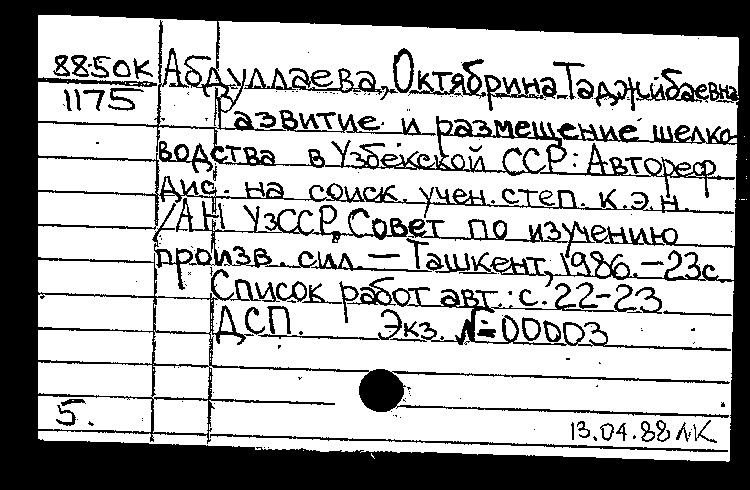 88-50К Абдуллаева, Октябрина Таджибаевна
1175 Развитие и размещение шелко-
водства в Узбекской ССР: Автореф.
дис. на соиск. учен. степ. к.э.н.
/АН УзССР, Совет по изучению
произв. сил. — Ташкент, 1986. — 23с.
Список работ авт.: с. 22-23.
ДСП. Экз. №=00003
5.
13.04.88 ЛК